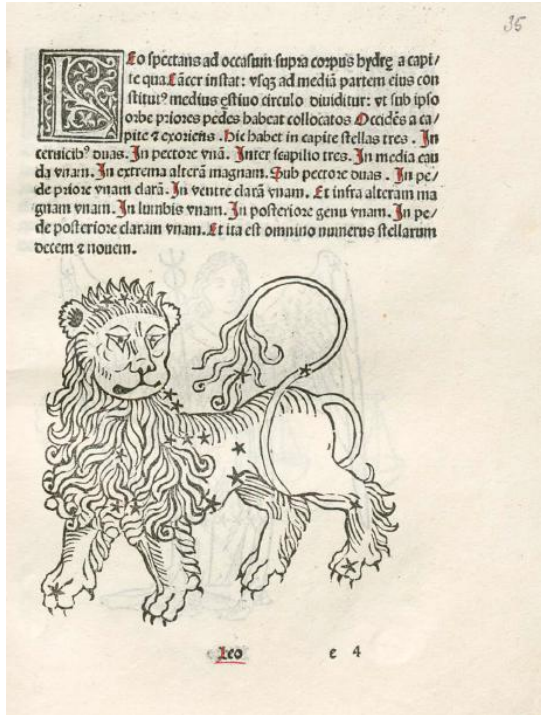 35
Leo spectans ad occasum supra corpus hydrę a capi/
te qua Cãcer instat: vsqȝ ad mediã partem eius con
stituiꝰ medius ęstiuo circulo diuiditur: vt sub ipso
orbe priores pedes habeat collocatos Occidẽs a ca/
pite ⁊ exoriens. Hic habet in capite stellas tres. In
ceruicibꝰ duas. In pectore vnã. Inter scapilio tres. In media cau
da vnam. In extrema alterã magnam. Sub pectore duas. In pe/
de priore vnam clarã. In ventre clarã vnam. Et infra alteram ma
gnam vnam. In lumbis vnam. In posteriore genu vnam. In pe/
de posteriore claram vnam. Et ita est omnino numerus stellarum
decem ⁊ nouem.
Leo e 4